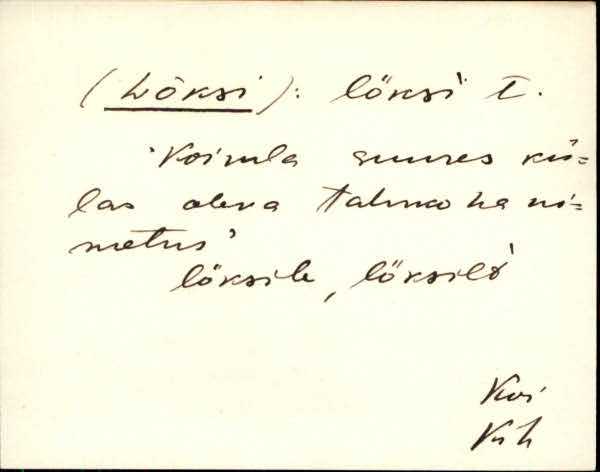 (Lõksi): lõksì t.
'Koirula suures kü-
las oleva talukoha ni-
metus'
lõksile, lõksilt
Kui
Krh